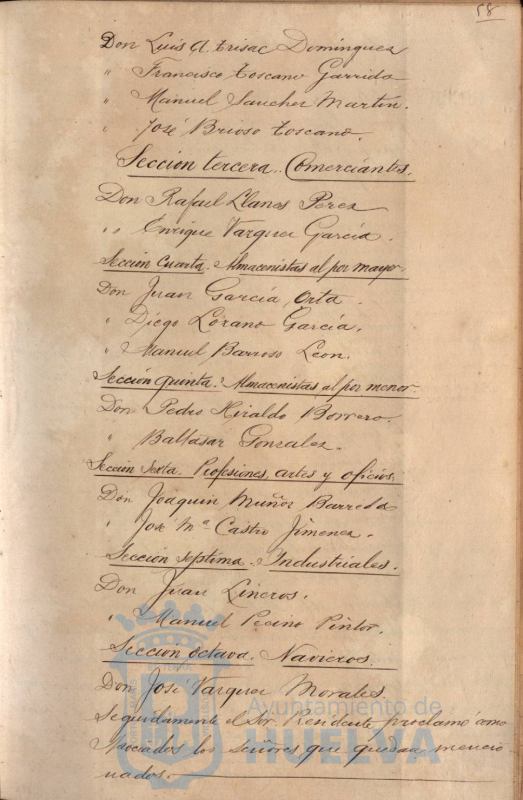 58
Don Luis A. Trisac Dominguez
" Francisco Toscano Garrido
" Manuel Sanchez Martin.
" José Brioso Toscano.
Sección tercera. Comerciantes.
Don Rafael Llanes Perez
" Enrique Vazquez García.
Sección Cuarta. Almacenistas al por mayor-
Don Juan García Orta.
" Diego Lozano García.
" Manuel Barroso Leon.
Sección quinta. Almacenistas al por menor-
Don Pedro Hiraldo Borrero.
" Baltasar Gonzalez.
Sección Sexta. Profesiones, artes y oficios,
Don Joaquin Muñoz Barreda
" José Mª Castro Jimenez.
Sección Septima. Industriales.
Don Juan Lineros.
" Manuel Pecino Pintor.
Sección Octava. Navieros.
Don José Vazquez Morales.
Seguidamente el Sor. Presidente proclamó como
Asociados los Señores que quedan mencio
nados.
Ayuntamiento de
HUELVA